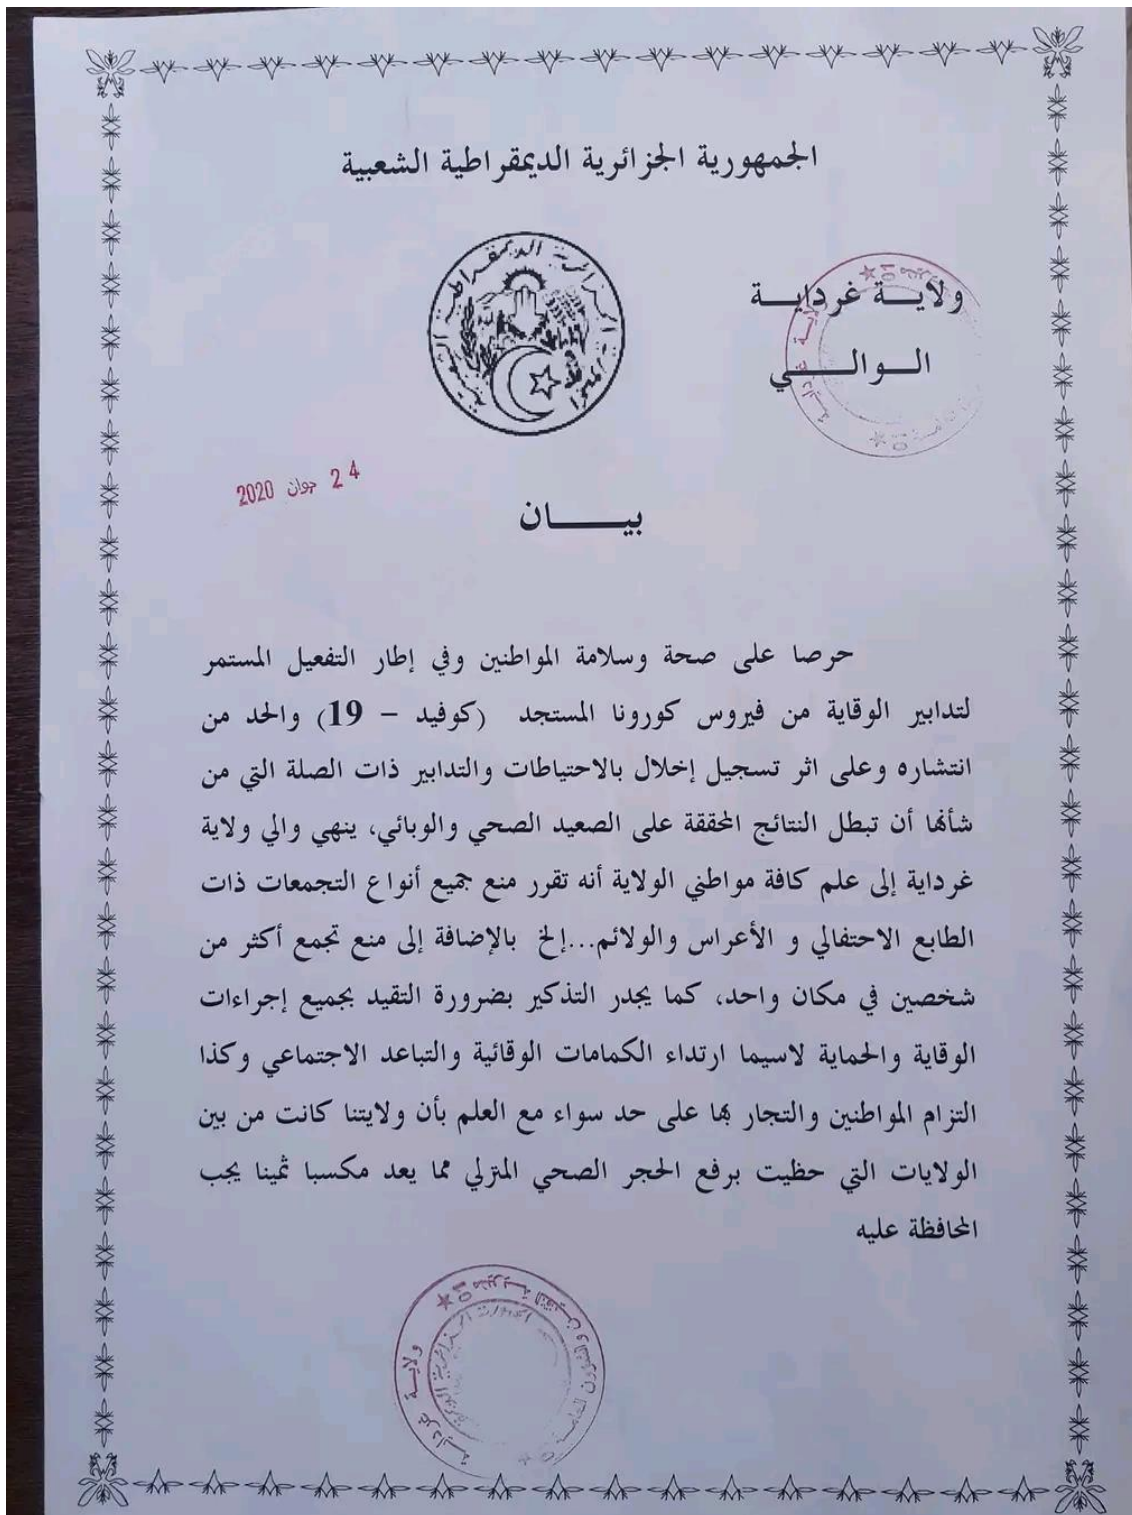 الجمهورية الجزائرية الديمقراطية الشعبية
ولايـــة غردايـــة
الــوالــــي
24 جوان 2020
بيــــــان
حرصا على صحة وسلامة المواطنين وفي إطار التفعيل المستمر
لتدابير الوقاية من فيروس كورونا المستجد (كوفيد – 19) والحد من
انتشاره وعلى اثر تسجيل إخلال بالاحتياطات والتدابير ذات الصلة التي من
شأنها أن تبطل النتائج المحققة على الصعيد الصحي والوبائي، ينهي والي ولاية
غرداية إلى علم كافة مواطني الولاية أنه تقرر منع جميع أنواع التجمعات ذات
الطابع الاحتفالي و الأعراس والولائم...إلخ بالإضافة إلى منع تجمع أكثر من
شخصين في مكان واحد، كما يجدر التذكير بضرورة التقيد بجميع إجراءات
الوقاية والحماية لاسيما ارتداء الكمامات الوقائية والتباعد الاجتماعي وكذا
التزام المواطنين والتجار بها على حد سواء مع العلم بأن ولايتنا كانت من بين
الولايات التي حظيت برفع الحجر الصحي المنزلي مما يعد مكسبا ثمينا يجب
المحافظة عليه
ولايـــة غردايـــة
مديريـة التقنيـن والشؤون العامـة